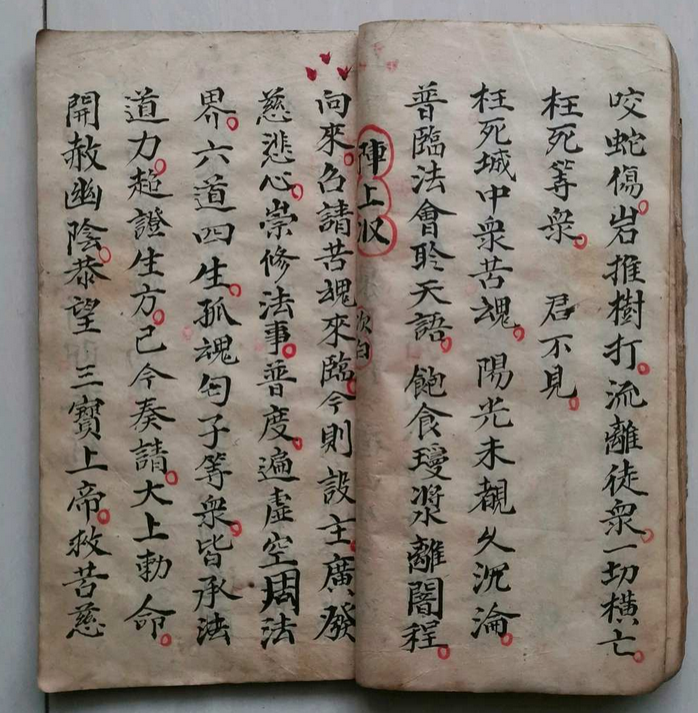 咬蛇傷岩推樹打流離徒衆一切橫亡
枉死等衆　君不見
枉死城中衆苦魂陽光未覩久沉淪
普臨法會聆天語飽食瓊漿離闇程
陣上汉
次白
向來召請苦魂來臨今則設主廣發
慈悲心崇修法事普度遍虛空周法
界六道四生孤魂甸子等衆皆承法
道力超證生方已今奏請大上勅命
開赦幽陰恭望　三寶上帝救苦慈